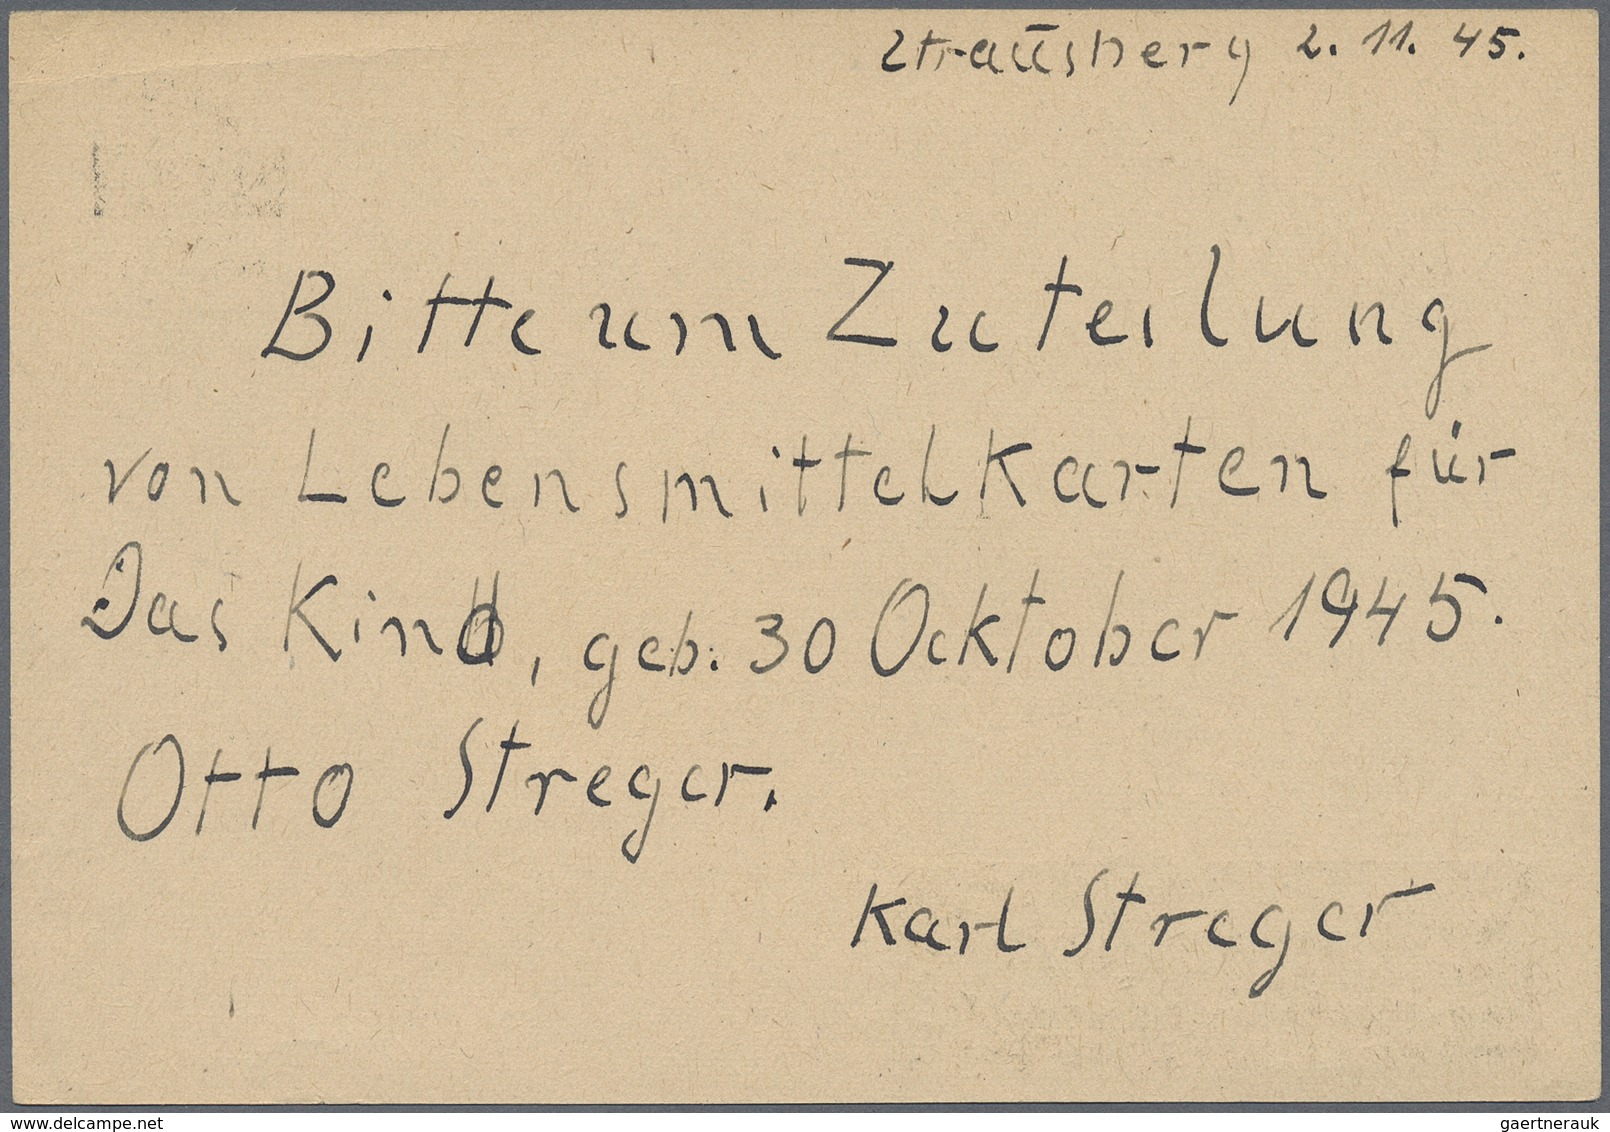 Strausberg 2. 11. 45.
Bitte um Zuteilung
von Lebensmittelkarten für
Das Kind, geb. 30 Ocktober 1945.
Otto Streger.
Karl Streger
www.delcampe.net
gaertnerauk